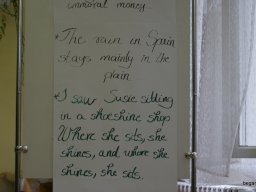 immoral money...
* The rain in Spain
stays mainly in the
plain
* I saw Susie sitting
in a shoeshine shop
Where she sits, she
shines, and where she
shines, she sits.
began